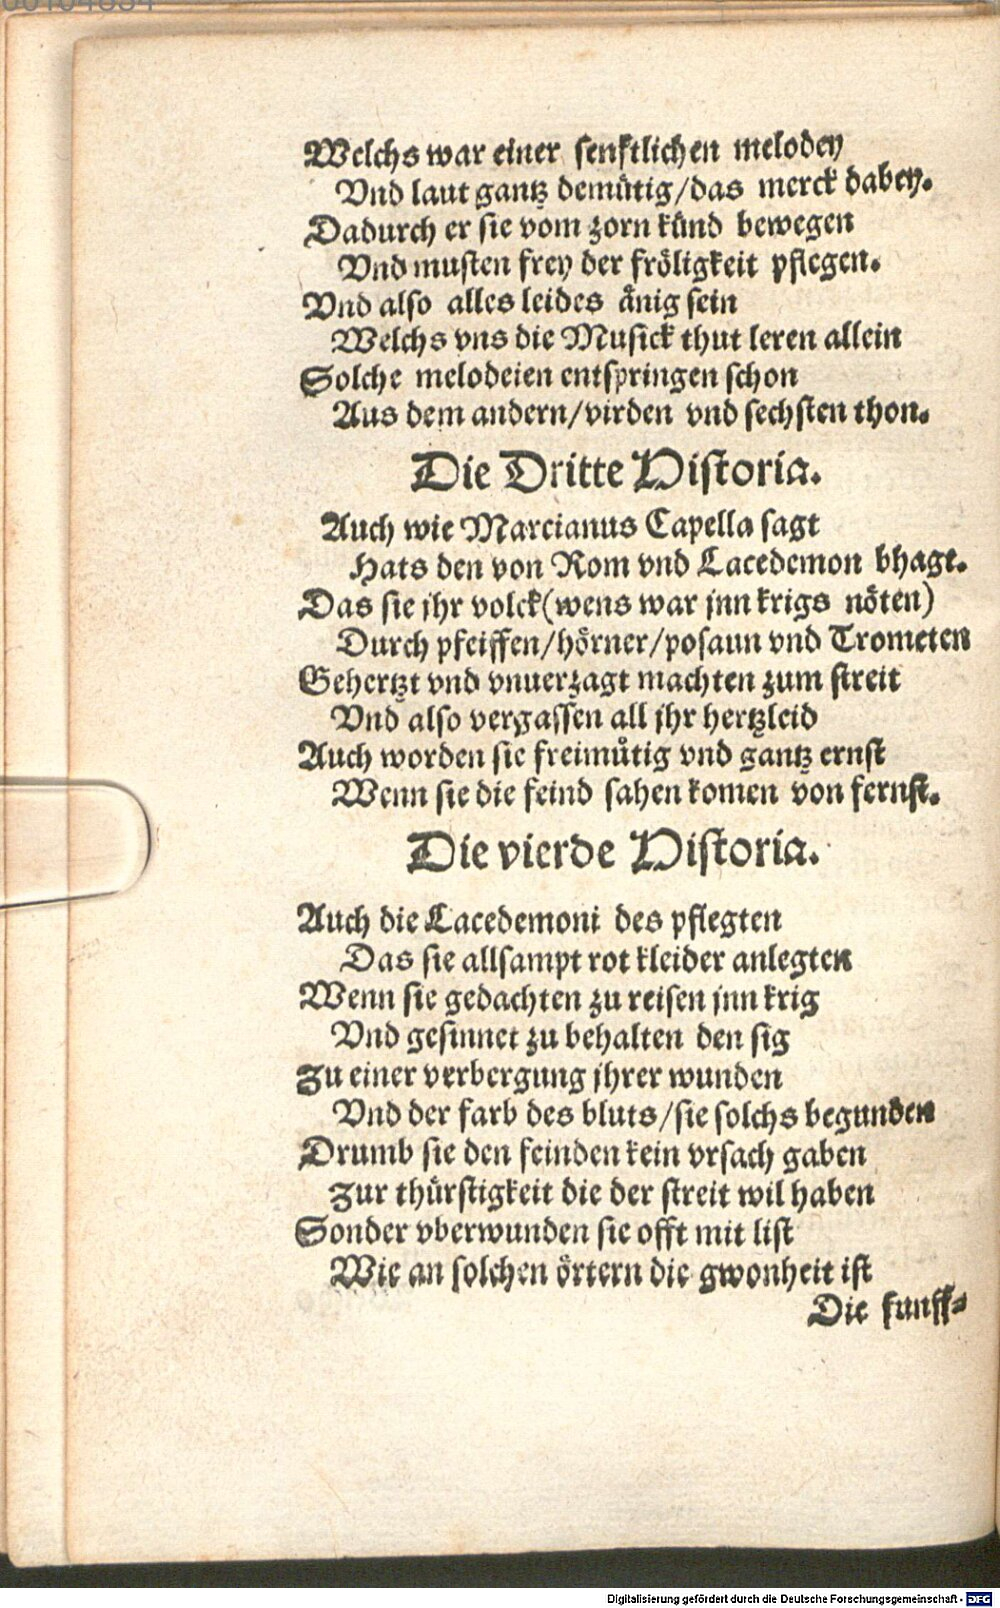 Welchs war einer senftlichen melodey
Vnd laut gantz demütig/das merck dabey.
Dadurch er sie vom zorn künd bewegen
Vnd musten frey der fröligkeit pflegen.
Vnd also alles leides änig sein
Welchs vns die Musick thut leren allein
Solche melodeien entspringen schon
Aus dem andern/virden vnd sechsten thon.
Die Dritte Historia.
Auch wie Marcianus Capella sagt
Hats den von Rom vnd Lacedemon bhagt.
Das sie jhr volck(wens war jnn krigs nöten)
Durch pfeiffen/hörner/posaun vnd Trometen
Gehertzt vnd vnuerzagt machten zum streit
Vnd also vergassen all jhr hertzleid
Auch worden sie freimůtig vnd gantz ernst
Wenn sie die feind sahen komen von fernst.
Die vierde Historia.
Auch die Lacedemoni des pflegten
Das sie allsampt rot kleider anlegten
Wenn sie gedachten zu reisen jnn krig
Vnd gesinnet zu behalten den sig
Zu einer verbergung jhrer wunden
Vnd der farb des bluts/sie solchs begunden
Drumb sie den feinden kein vrsach gaben
Zur thürstigkeit die der streit wil haben
Sonder vberwunden sie offt mit list
Wie an solchen örtern die gwonheit ist
Die funff-
Digitalisierung gefördert durch die Deutsche Forschungsgemeinschaft - DFG